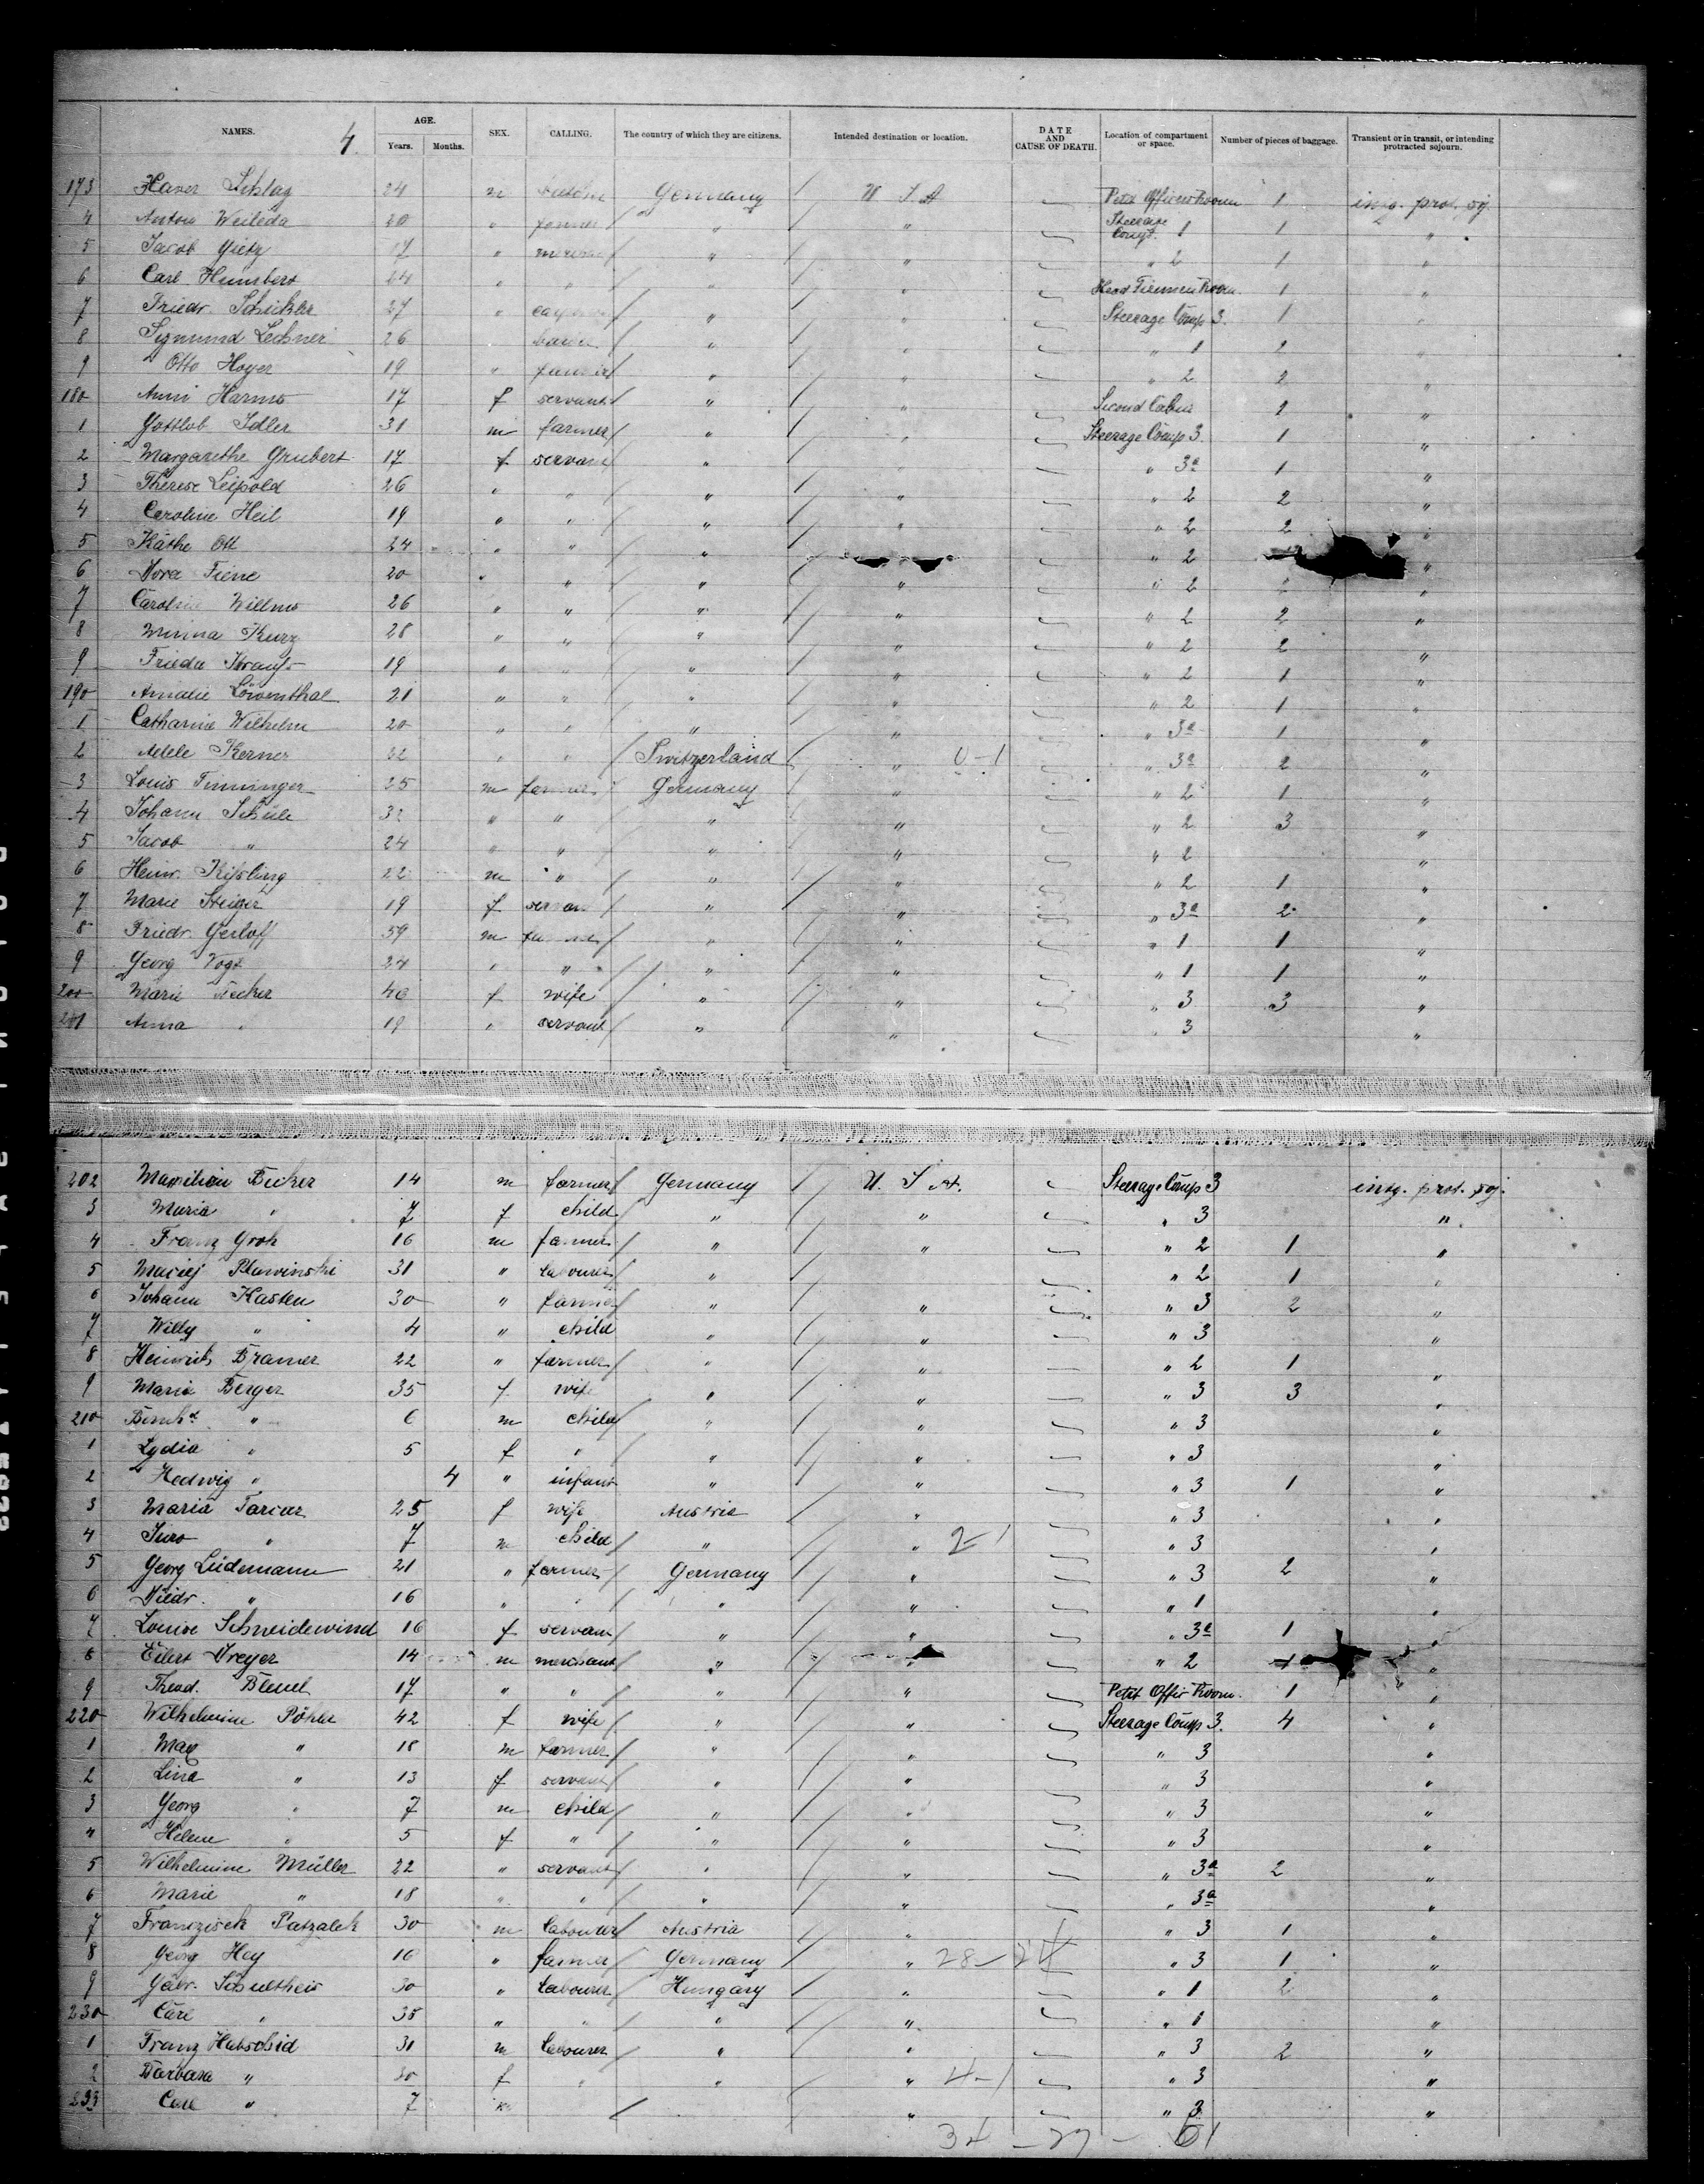 4.
NAMES. AGE. Years. Months. SEX. CALLING. The country of which they are citizens. Intended destination or location. DATE AND CAUSE OF DEATH. Location of compartment or space. Number of pieces of baggage. Transient or in transit, or intending protracted sojourn.
173 Schlag 24 m Germany U S A Petit Officer Room 1 intg. prot. soj.
4 Anton 20 " farmer " " Steerage Comp. 1 1 "
5 Jacob 17 " " " " 2 1 "
6 Carl Humbert 24 " " " " Head Firemen Room 1 "
7 Friedr. 27 " " " Steerage Comp 3. 1 "
8 Sigmund Lechner 26 " " " 1 2 "
9 Otto Hoyer 19 " farmer " " " 2 2 "
180 Anni Harms 17 f servant " " Second Cabin 2 "
1 Gottlob Idler 31 m farmer " " Steerage Comp 3. 1 "
2 Margarethe Grubert 17 f servant " " 3a 1 "
3 Therese Leipold 26 " " " " " 2 2 "
4 Caroline Heil 19 " " " " " 2 2 "
5 Käthe Ott 24 " " " " 2 "
6 Dora Tiene 20 " " " " " 2 "
7 Caroline Willms 26 " " " " " 2 2 "
8 Minna Kurz 28 " " " " " 2 2 "
9 Frieda Strauß 19 " " " " " 2 1 "
190 Amalie Löwenthal 21 " " " " " 2 1 "
1 Catharine Wilhelm 20 " " " " " 3a 1 "
2 Adele Kerner 22 " " Switzerland " 0-1 " 3a 2 "
3 Louis 25 m farmer Germany " " 2 1 "
4 Johann Schüle 32 " " " " " 2 3 "
5 Jacob " 24 " " " " " 2 "
6 Heinr. Kißling 22 m " " " " 2 1 "
7 Marie Steiger 19 f servant " " " 3a 2 "
8 Friedr. Gerloff 59 m farmer " " " 1 1 "
9 Georg Vogt 24 " " " " " 1 1 "
200 Marie Becker 46 f wife " " " 3 3 "
201 Anna " 19 " servant " " " 3 "
202 Maxilian Becker 14 m farmer Germany U. S A. Steerage Comp 3 intg. prot. soj.
3 Maria " 7 f child " " " 3 "
4 Franz Groh 16 m farmer " " " 2 1 "
5 Maciej Plawinski 31 " labourer " " 2 1 "
6 Johann Kasten 30 " farmer " " " 3 2 "
7 Willy " 4 " child " " " 3 "
8 Heinrich Bramer 22 " farmer " " " 2 1 "
9 Maria Berger 35 f wife " " " 3 3 "
210 Bernhd " 6 m child " " " 3 "
1 Lydia " 5 f " " " " 3 "
2 Hedwig " 4 " infant " " " 3 1 "
3 Maria 25 f wife Austria " " 3 "
4 " 7 m child " " 2-1 " 3 "
5 Georg Lüdemann 21 " farmer Germany " " 3 2 "
6 Diedr. " 16 " " " " " 1 "
7 Louise Schneidewind 16 f servant " " " 3a 1 "
8 Eilert Dreyer 14 m merchant " " " 2 1 "
9 Theod. 17 " " " " Petit Offir Room. 1 "
220 Wilhelmine Pöhler 42 f wife " " Steerage Comp 3. 4 "
1 Max " 18 m farmer " " " 3 "
2 Lina " 13 f servant " " " 3 "
3 Georg " 7 m child " " " 3 "
4 Helene " 5 f " " " " 3 "
5 Wilhelmine Müller 22 " servant " " " 3a 2 "
6 Marie " 18 " " " " " 3a "
7 Franzisek Patzalek 30 m labourer Austria " 3 1 "
8 Georg Hey 16 " farmer Germany " 28- " 3 1 "
9 Gabr. Schultheis 30 " labourer Hungary " " 1 2 "
230 Carl " 35 " " " " " 1 "
1 Franz Habschid 31 m labourer " " " 3 2 "
2 Barbara " 30 f " " " 4-1 " 3 "
233 Carl " 7 m " " 3 "
34 - 27 - 61